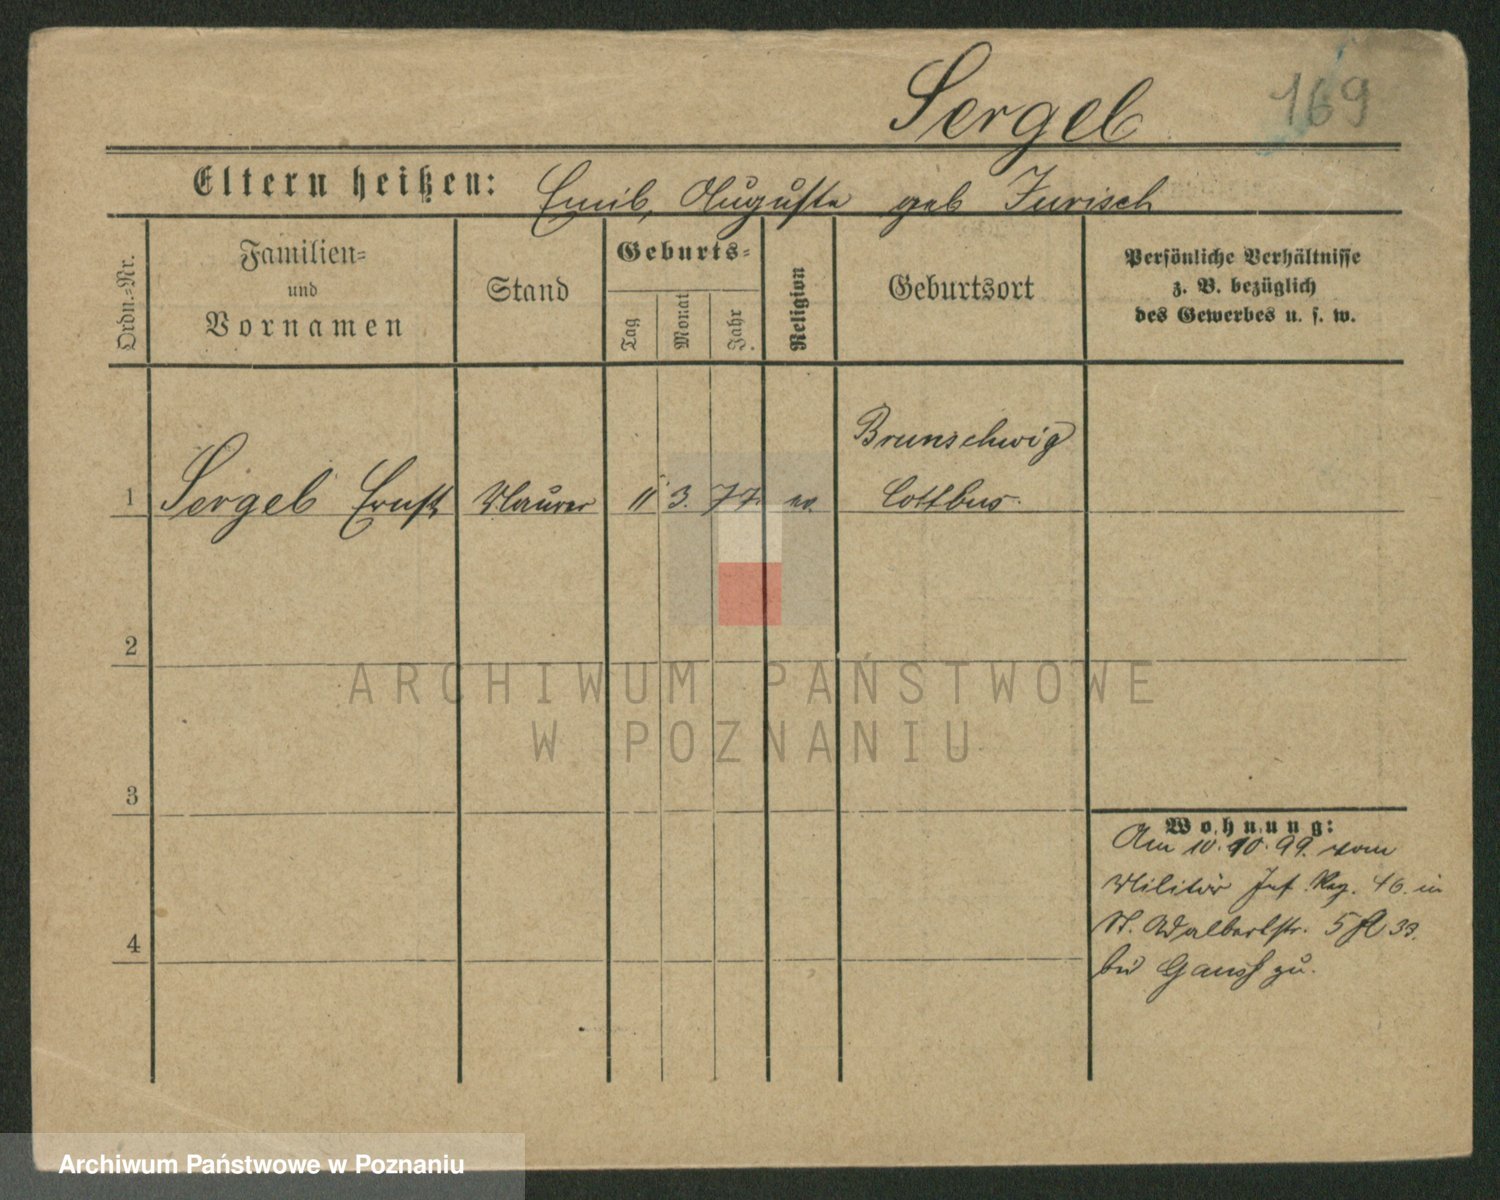 Sergel 169
Eltern heißen: Emil, Auguste geb Jurisch
Ordn.=Nr.
Familien=
und
Vornamen
Stand
Geburts=
Tag
Monat
Jahr
Religion
Geburtsort
Persönliche Verhältnisse
z. B. bezüglich
des Gewerbes u. s. w.
Brunschwig
1 Sergel Ernst Maurer 11 3. 77. ev. Cottbus.
2
ARCHIWUM PAŃSTWOWE
W POZNANIU
3
Wohnung:
Am 10. 10. 99. vom
Militär Inf. Reg. 46. in
St. Adalbertstr. 5
4
bei zu.
Archiwum Państwowe w Poznaniu